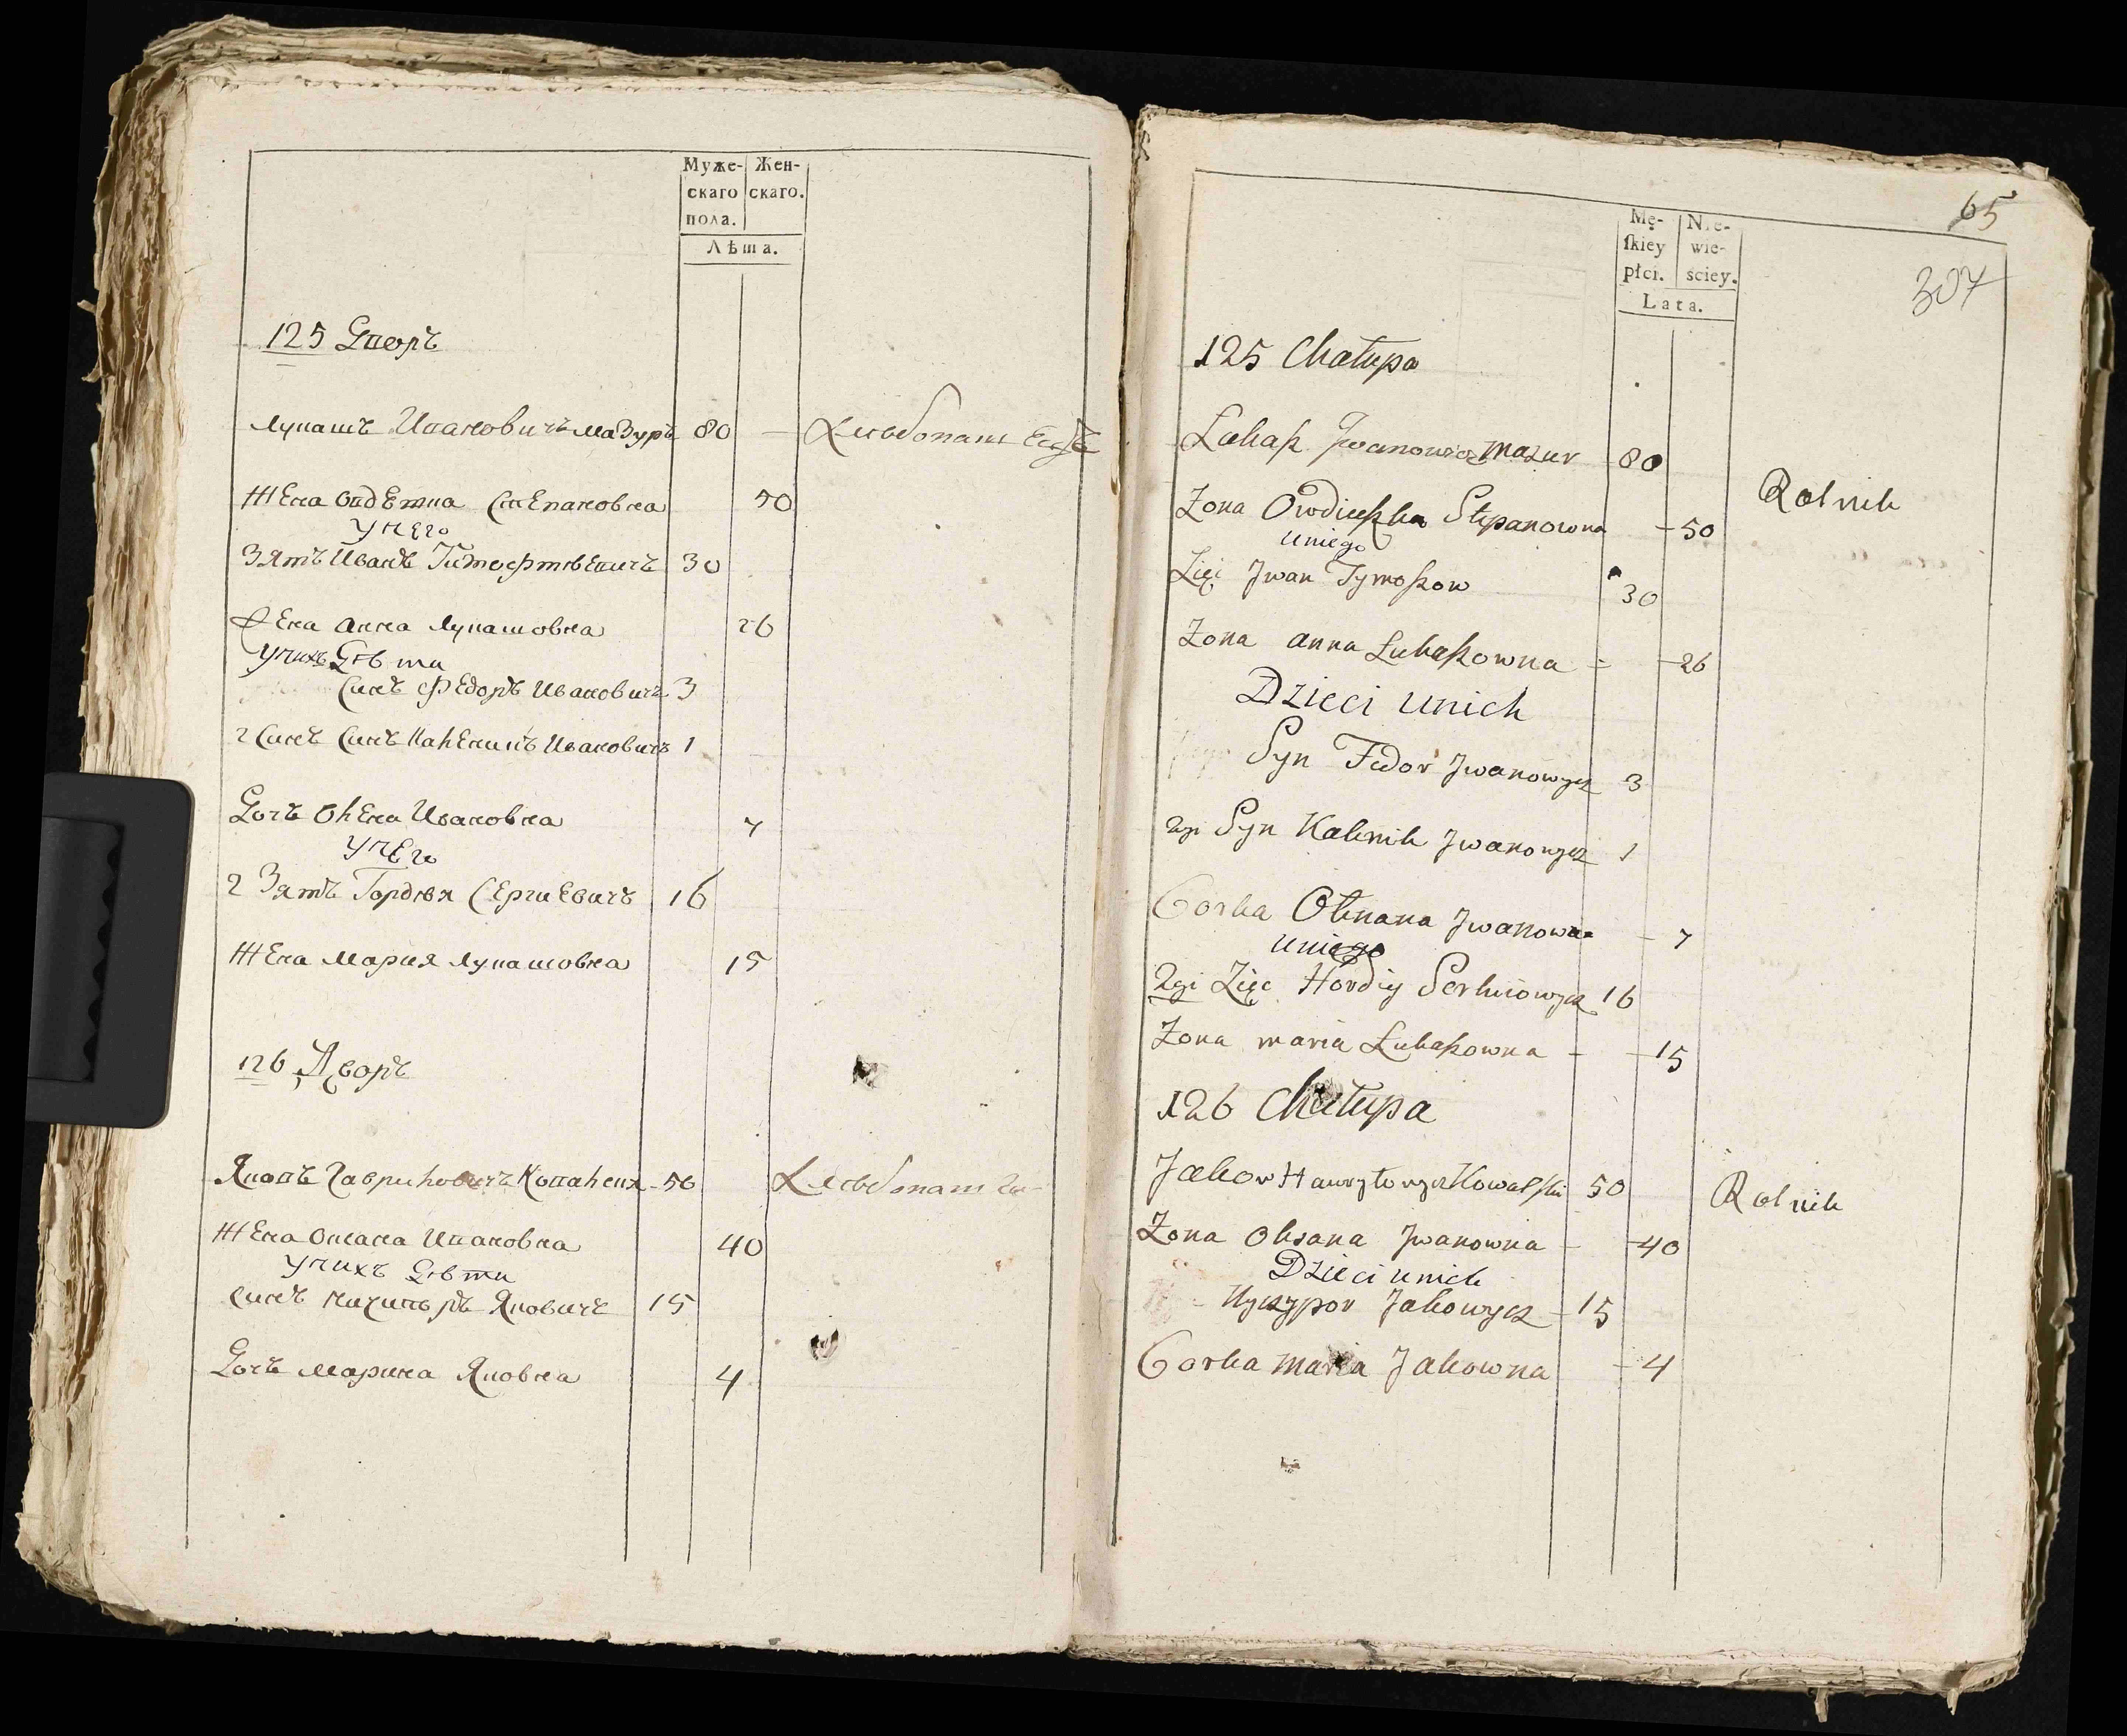 Муже- Жен-
скаго скаго.
пола.
Лѣта.
125 Дворъ
Лукашъ Ивановичъ Мазуръ 80
Жена Овдешка Степановна 50
У него
Зять Иванъ 30
Жена Анна Лукашовна 26
У нихъ Дѣти
Синъ Федоръ Ивановичъ 3
2 Синъ Синъ Каленикъ Ивановичъ 1
Дочь Олена Ивановна 7
У него
2 Зять Гордѣй Сергиевичъ 16
Жена Мария Лукашовна 15
126 Дворъ
Яковъ Гавриловичъ 50
Жена Оксана Ивановна 40
У нихъ Дѣти
Синъ Яковичъ 15
Дочь Марина Яковна 4
65
307
Mę- Nie-
skiey wie-
płci. ściey.
Lata.
125 Chałupa
Łukasz Iwanowicz Mazur 80
Rolnik
Żona Owdiuszka Stepanowna 50
u niego
Zięć Iwan Tymoszow 30
Żona Anna Łukaszowna 26
Dzieci u nich
Syn Fedor Iwanowycz 3
2gi Syn Kalenik Iwanowycz 1
Corka Ołenana Iwanowna 7
u niego
2gi Zięć Hordiy Serhiiowycz 16
Żona Maria Łukaszowna 15
126 Chałupa
Jakow Hawryłowycz Kowalski 50
Rolnik
Żona Oksana Iwanowna 40
Dzieci u nich
Nyczypor Jakowycz 15
Corka Maria Jakowna 4